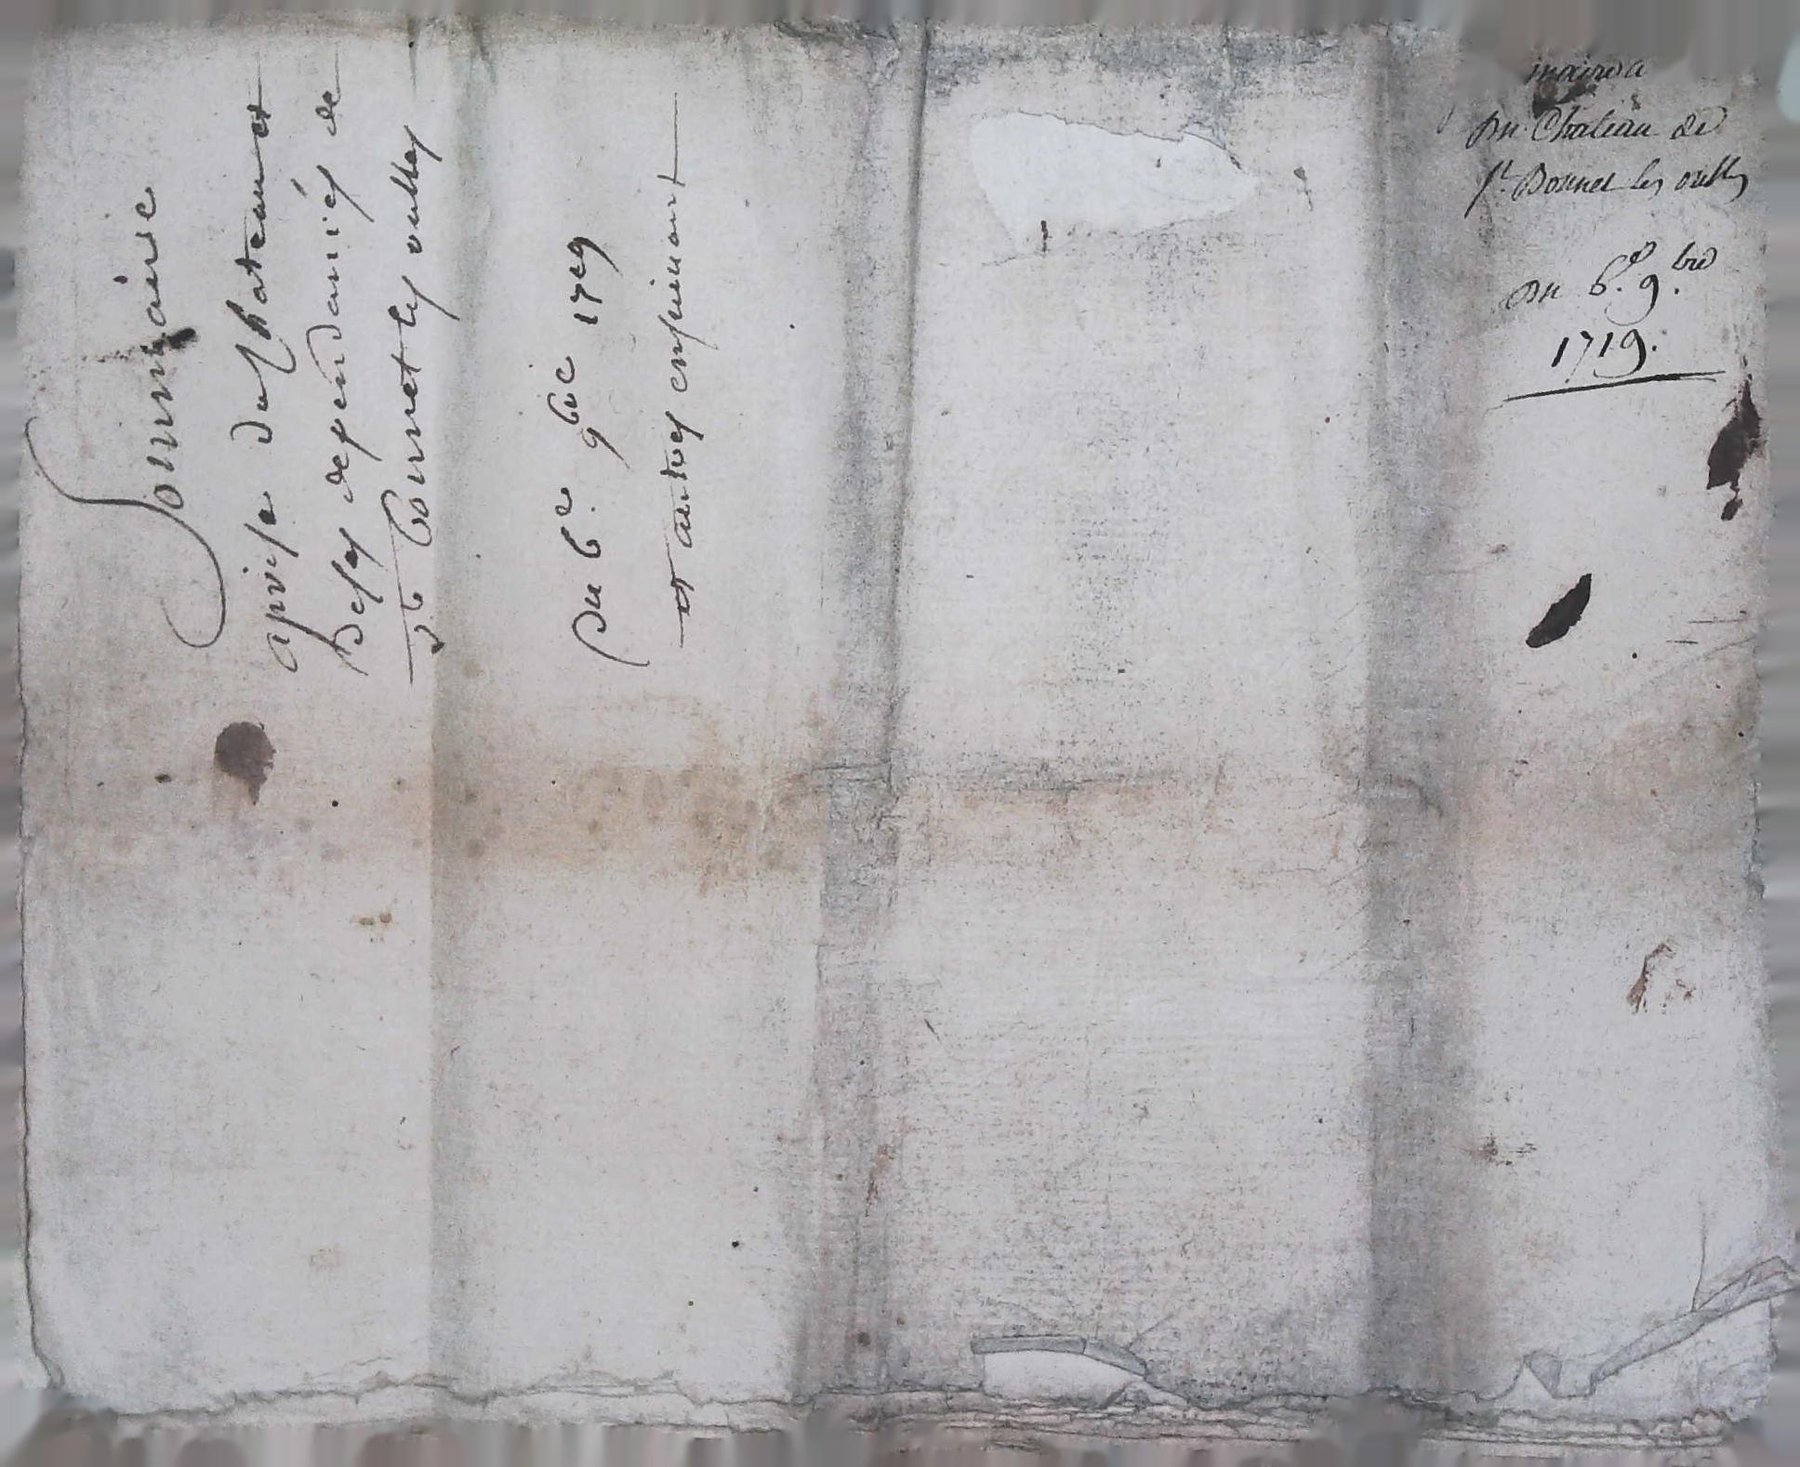 Sommaire
aprise du chateau et
de ses dependances de
st bonnet les oulles
du 6e 9bre 1719
et autres ensuivant
maire a
du Chateau de
st Bonnet les oulles
du 6e 9.bre
1719.